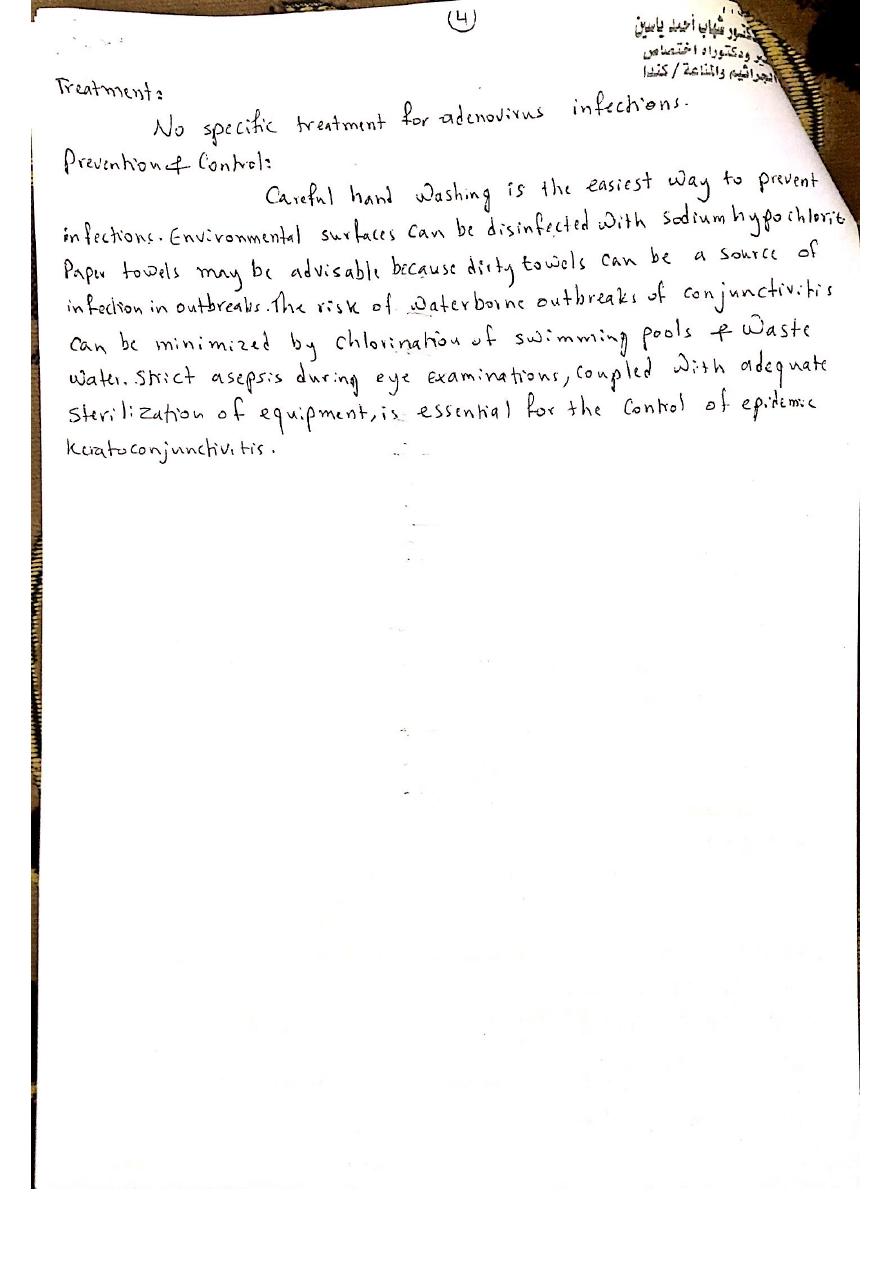 (4)
شهاب أحمد ياسين
ودكتوراه اختصاص
الجراثيم والمناعة / كندا
Treatment:
No specific treatment for adenovirus infections.
Prevention & Control:
Careful hand washing is the easiest way to prevent
infections. Environmental surfaces can be disinfected with sodium hypochlorit
Paper towels may be advisable because dirty towels can be a source of
infection in outbreaks. The risk of waterborne outbreaks of conjunctivitis
can be minimized by chlorination of swimming pools & waste
water. Strict asepsis during eye examinations, coupled with adequate
sterilization of equipment, is essential for the control of epidemic
keratoconjunctivitis.